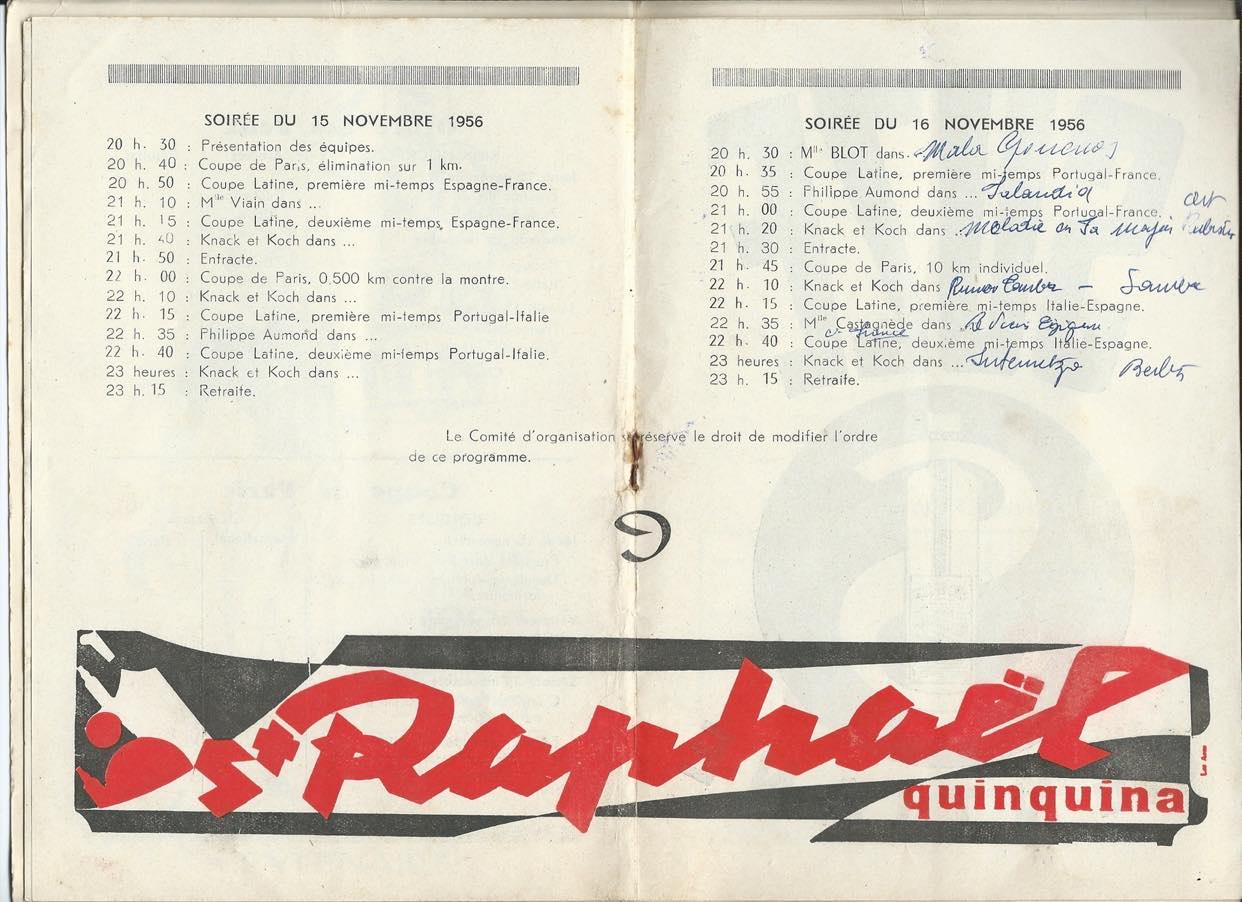 SOIRÉE DU 15 NOVEMBRE 1956
20 h. 30 : Présentation des équipes.
20 h. 40 : Coupe de Paris, élimination sur 1 km.
20 h. 50 : Coupe Latine, première mi-temps Espagne-France.
21 h. 10 : Mlle Viain dans ...
21 h. 15 : Coupe Latine, deuxième mi-temps, Espagne-France.
21 h. 40 : Knack et Koch dans ...
21 h. 50 : Entracte.
22 h. 00 : Coupe de Paris, 0.500 km contre la montre.
22 h. 10 : Knack et Koch dans ...
22 h. 15 : Coupe Latine, première mi-temps Portugal-Italie
22 h. 35 : Philippe Aumond dans ...
22 h. 40 : Coupe Latine, deuxième mi-temps Portugal-Italie.
23 heures : Knack et Koch dans ...
23 h. 15 : Retraite.
SOIRÉE DU 16 NOVEMBRE 1956
20 h. 30 : Mlle BLOT dans.
20 h. 35 : Coupe Latine, première mi-temps Portugal-France.
20 h. 55 : Philippe Aumond dans ...
21 h. 00 : Coupe Latine, deuxième mi-temps Portugal-France.
21 h. 20 : Knack et Koch dans ... Melodie en Fa
21 h. 30 : Entracte.
21 h. 45 : Coupe de Paris, 10 km individuel.
22 h. 10 : Knack et Koch dans - Samba
22 h. 15 : Coupe Latine, première mi-temps Italie-Espagne.
22 h. 35 : Mlle Castagnède dans
France
22 h. 40 : Coupe Latine, deuxième mi-temps Italie-Espagne.
23 heures : Knack et Koch dans ...
23 h. 15 : Retraite.
Le Comité d'organisation se réserve le droit de modifier l'ordre
de ce programme.
St Raphaël
quinquina